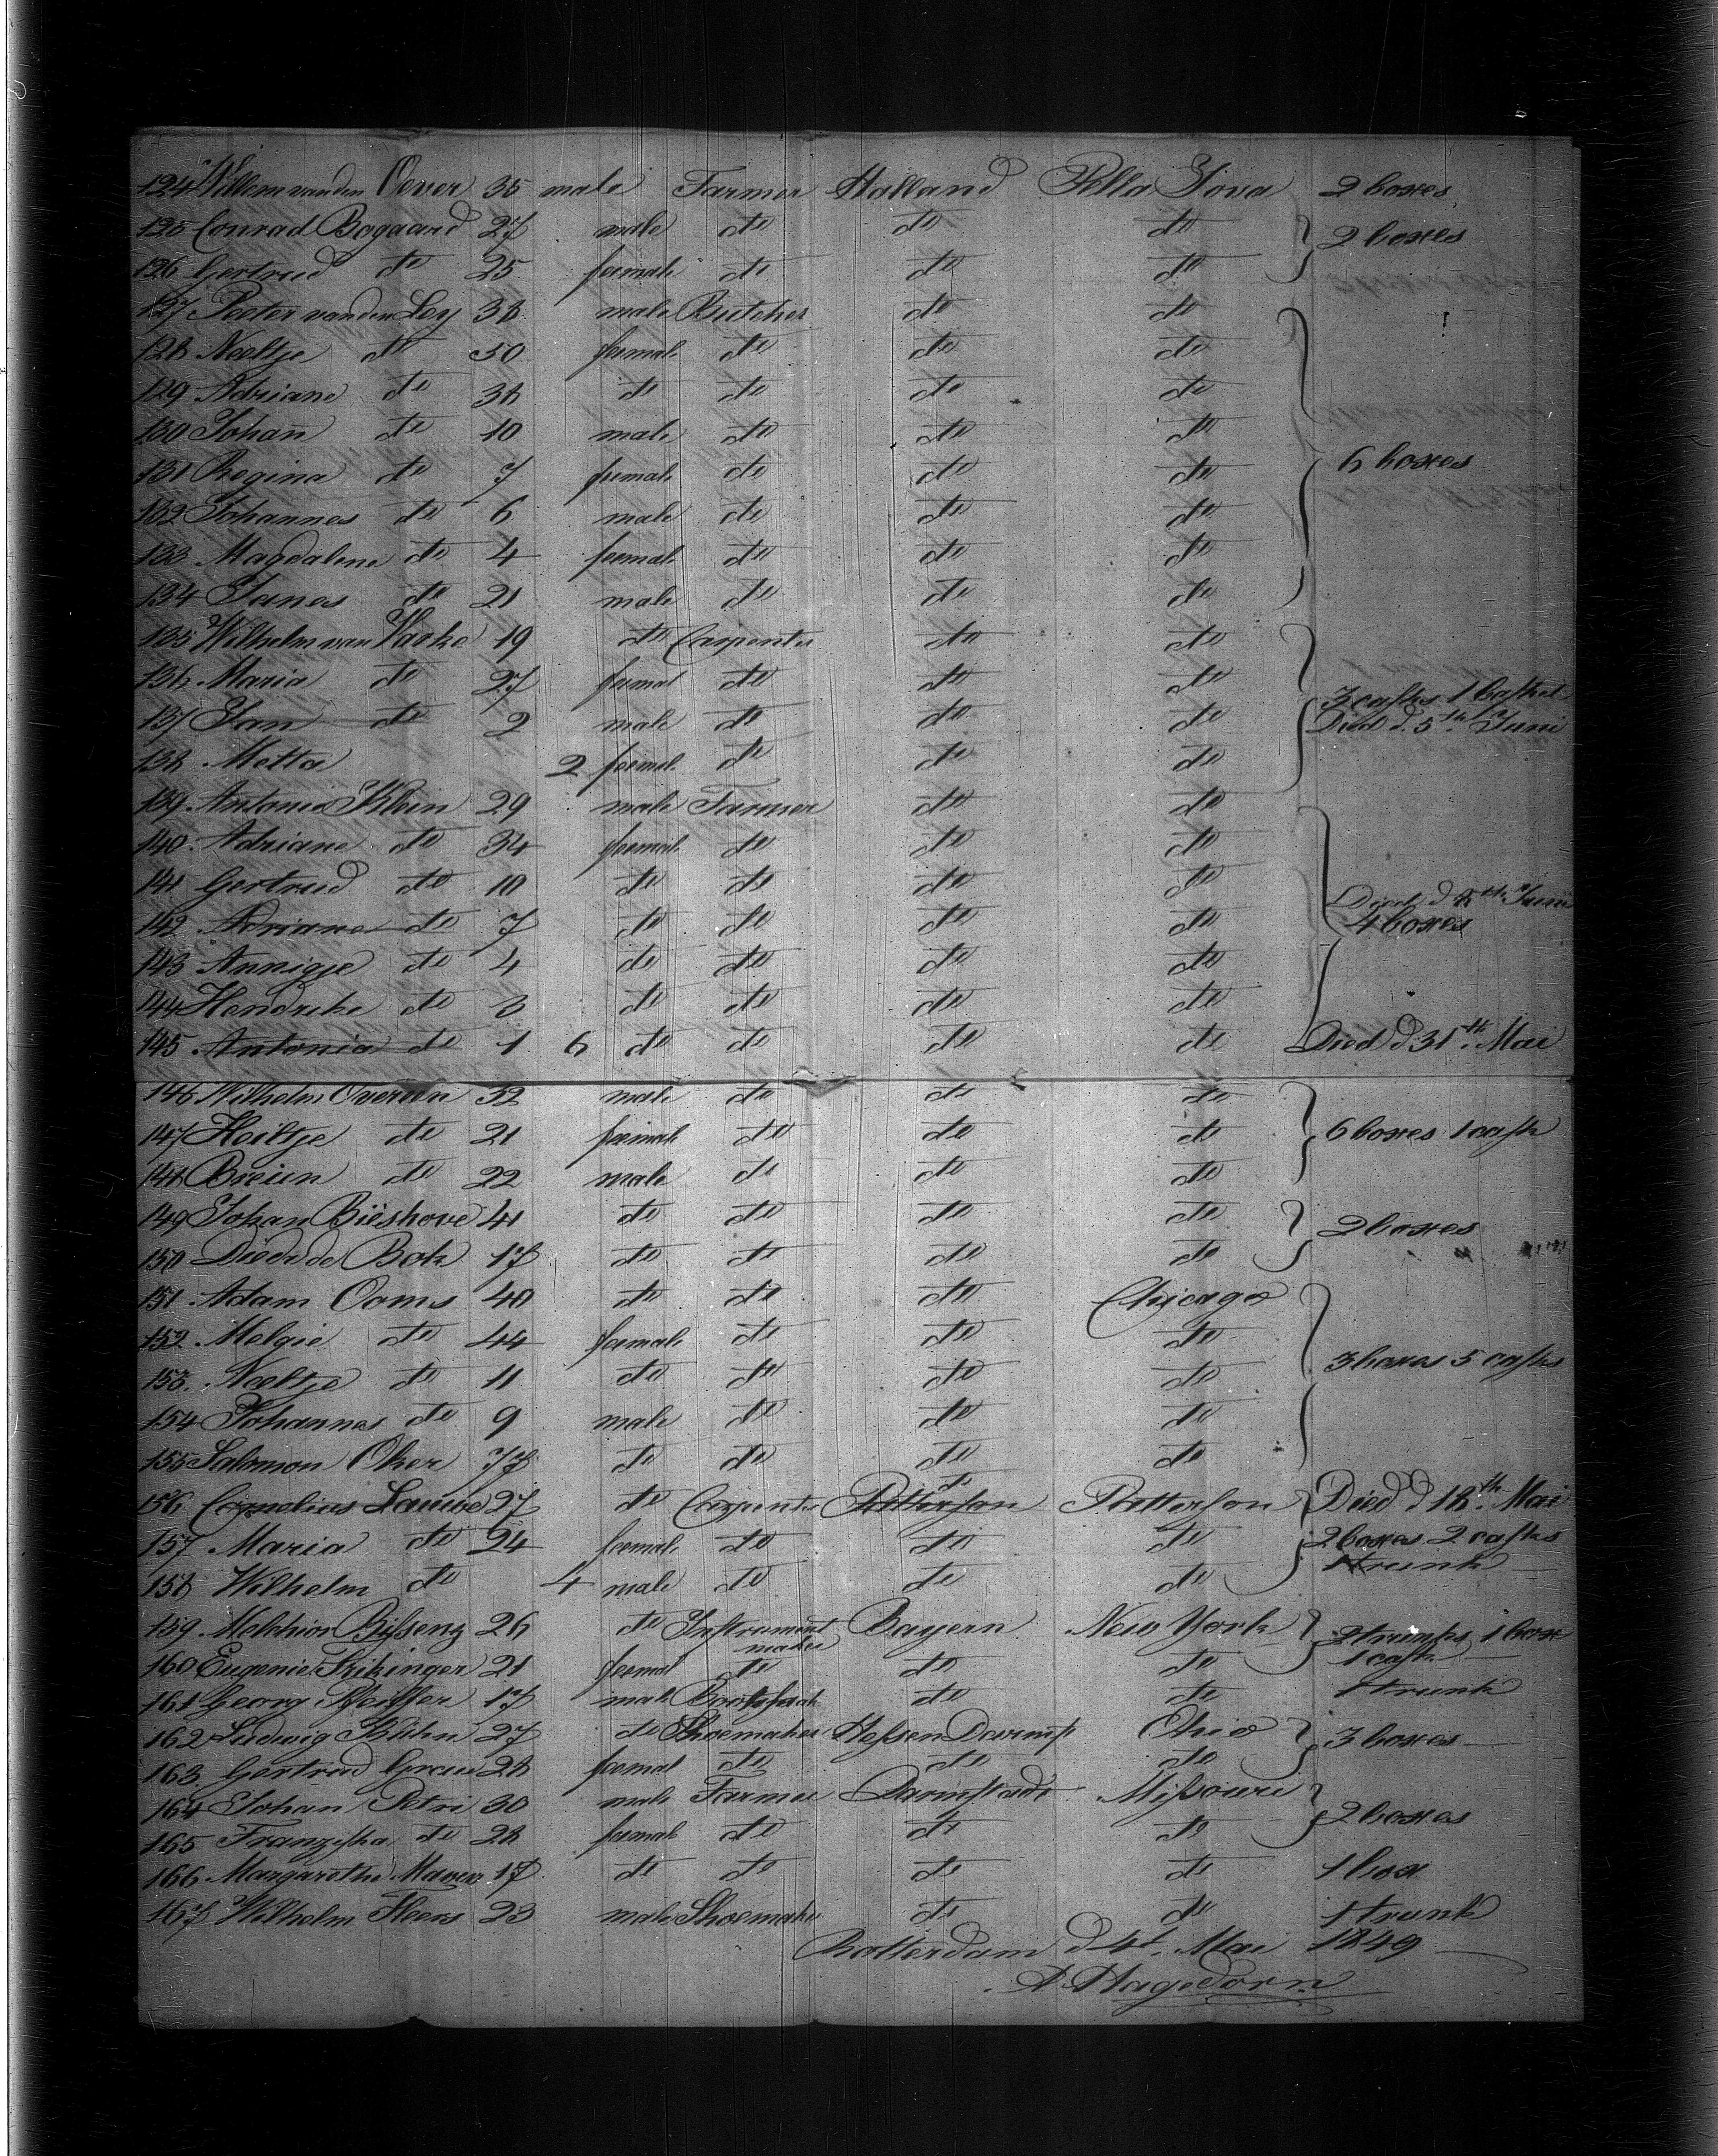 124 Willem van den Oever 35 male Farmer Holland Pella Jova 2 boxes
125 Conrad Bogaard 27 male do do do 2 boxes
126 Gertrud do 25 female do do do
127 Peeter van den Ley 38 male Butcher do do
128 Neeltje do 50 female do do do
129 Adriane do 38 do do do do
130 Johan do 10 male do do do
131 Regina do 7 female do do do 6 boxes
132 Johannes do 6 male do do do
133 Magdalene do 4 female do do do
134 Janes do 21 male do do do
135 Wilhelm van 19 do Carpenter do do
136 Maria do 27 femal do do do
3 casks 1 basket
137 Jan do 2 male do do do Died d. 5th Juni
138 Metta 2 femal. do do do
139 Antonie Klein 29 male Farmer do do
140 Adriane do 34 female do do do
141 Gertrud do 10 do do do do
Died d 8th Juni
142 Adriane do 7 do do do do 4 boxes
143 Annigje do 4 do do do do
144 Hendreke do 3 do do do do
145 Antonia do 1 6 do do do do Died d 31th Mai
146 Wilhelm Overeen 32 male do do do
147 Heiltje do 21 female do do do 6 boxes 1 cask
148 do 22 male do do do
149 Johan Bieshove 41 do do do do 2 boxes
150 de Bok 17 do do do do
151 Adam Ooms 40 do do do Chicago
152 Melgie do 44 female do do do
153. Neeltje do 11 do do do do 3 boxes 5 casks
154 Johannes do 9 male do do do
155 Salomon Oker 77 do do do do
do
156 Cornelius Lauwe 27 do Carpenter Patterson Patterson Died d 18th Mai
157 Maria do 24 female do do do 2 boxes 2 casks
1 trunk
158 Wilhelm do 4 male do do do
159 Melchior Bissenz 26 do Instrument Bayern New York 2 trunks 1 box
maker 1 cask
160 Eugenie 21 femal do do do
161 Georg Pfeiffer 17 male do do 1 trunk
162 Ludwig 27 do Shoemaker Hessen Darmst Ohio 3 boxes
163. Gertrud 28 femal do do do
164 Johan Petri 30 male Farmer Darmstadt Missouri
165 Franziska do 28 femal do do do 2 boxes
166 Margarethe 17 do do do do 1 box
167 Wilhelm 23 male Shoemaker do do 1 trunk
Rotterdam d 4t. Mai 1849
Hagedorn